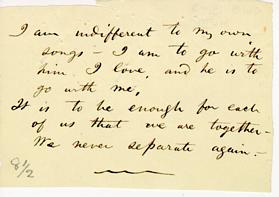 I am indifferent to my own
songs — I am to go with
him I love, and he is to
go with me,
It is to be enough for each
of us that we are together —
We never separate again. —
8 1/2